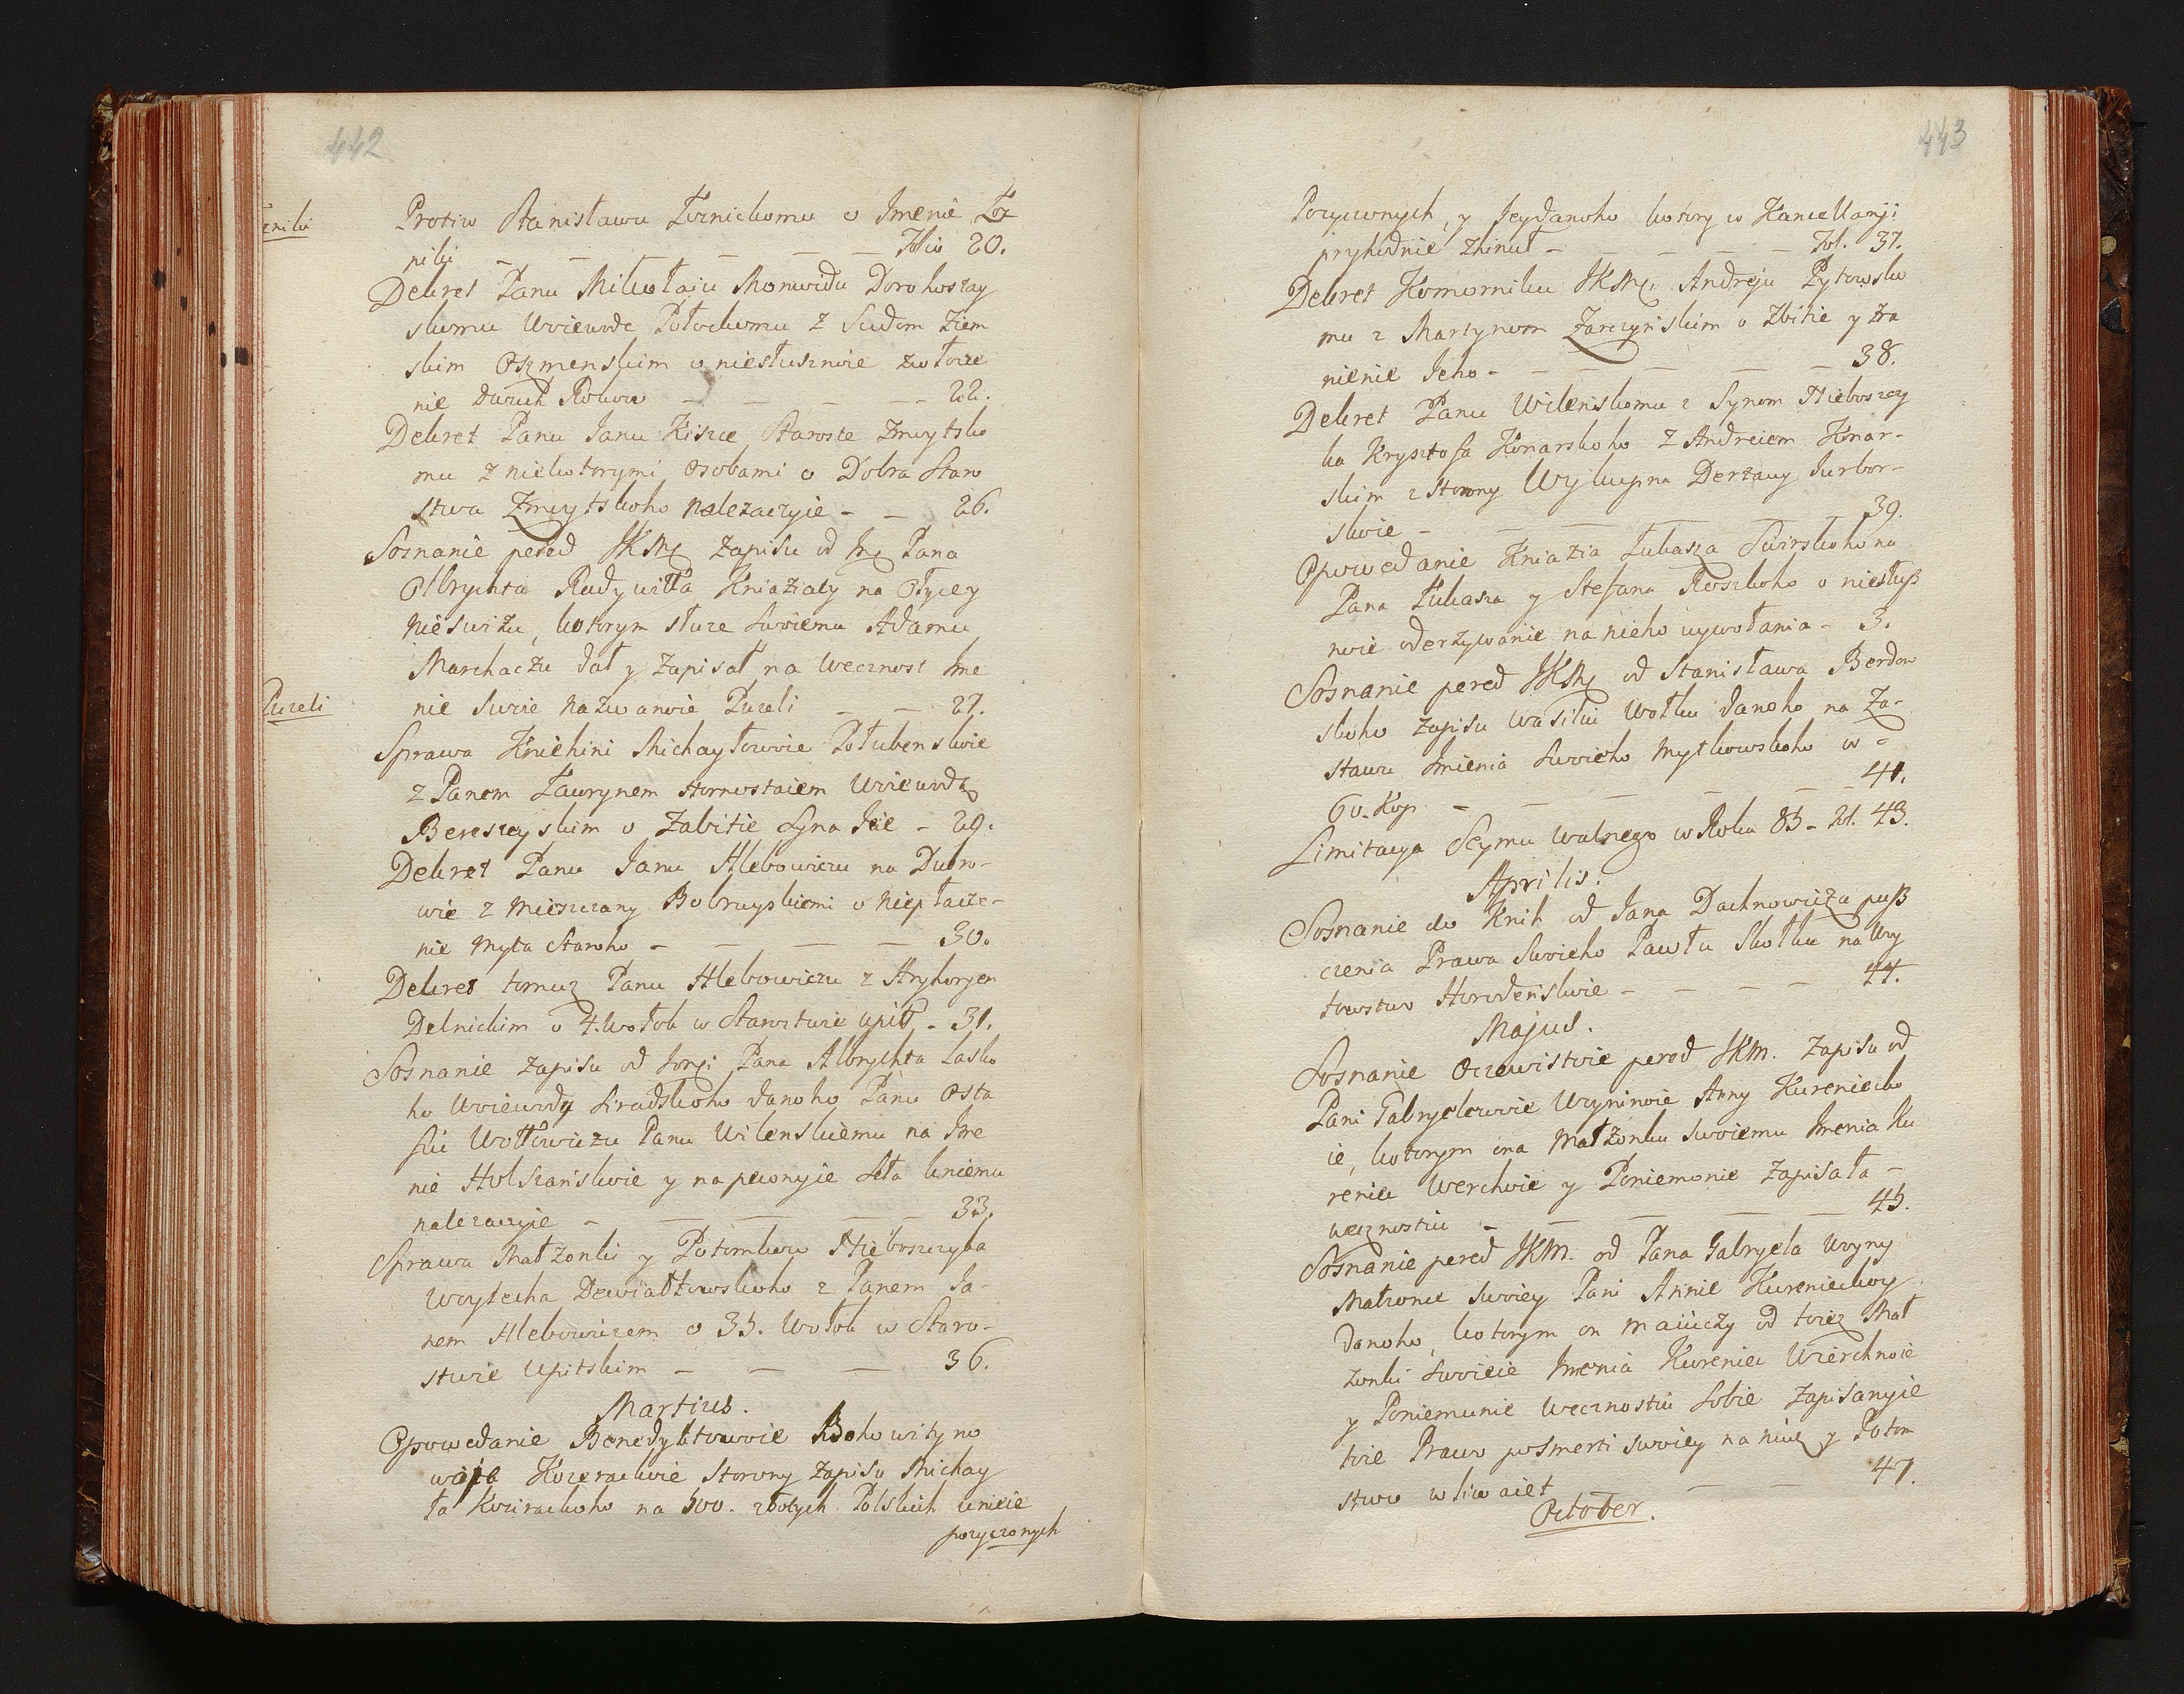 442
Protiw Stanisławu Łoznickomu o Imenie Łoz
niki Folio 20.
Dekret Panu Mikołaiu Monwidu Dorohostay
skomu Woiewode Połockomu z Sudom Ziem
skim Oszmenskim o niesłusznoie zwołocze
nie Dwuch Rokow 22.
Dekret Panu Janu Kiszce Staroste Zmoytsko
mu z niekotorymi Osobami o Dobra Staro
stwa Zmoytskoho należaczyie 26.
Soznanie pered JKMcz Zapisu od Jmcz Pana
Olbrychta Radywiłła Kniażiaty na Ołycey
Nieswiżu, kotorym słuze Swoiemu Adamu
Marchaczu dał y zapisał na wecznost Ime
Puzeli
nie Swoie nazwanoie Puzeli 27.
Sprawa Kniehini Michayłowoie Połubenskoie
z Panom Ławrynem Woiewodcz
Beresteyskim o Zabitie Syna Jeie 29.
Dekret Panu Janu Hlebowiczu na Dubro-
wie z Mieszczany Bobruyskiemi o niepłacze-
nie Myta Staroho 30.
Dekret tomuz Panu Hlebowiczu z Hryhorjem
Delnickim o 4. Wołok w Starostwie Upit. 31.
Soznanie zapisu od Jmci Pana Albrychta Lasko
ho Woiewody Siradskoho danoho Panu Osta
fiu Wołłowiczu Panu Wilenskiemu na Ime
nie Holszanskoie y na pewnyie Seła kniemu
należaczyie 33.
Sprawa Małżonki y Potomkow Nieboszczyka
Woytecha Dewiałtowskoho z Panem Ja-
nem Hlebowiczem o 35. Wołok w Staro-
stwie Upitskim 36.
Martius.
Opowedanie Benedyktowoie Bohowityno
Kozerackoie Storony Zapisu Michay
ła Kozirackoho na 500. złotych Polskich unieie
pozyczonych
443
Pozyczonych, y Jeydanoho kotory w Kancellaryi
pryhodnie zhinuł Fol. 37.
Dekret Komorniku JKMci Andreju Pytowsko
mu z Martynom Zarczynskim o zbitie y zra
nienie Jeho 38.
Dekret Panu Wilenskomu z Synom Nieboszczy
ka Krysztofa Konarskoho z Andreiem Konar-
skim z Storony Wykupna Derżawy Jurbor-
skoie 39.
Opowedanie Kniazia Łukasza Swirskoho na
Pana Łukasza y Stefana Roskoho o niesłusz
noie oderżywanie na nieho wywołania 3.
Soznanie pered JKMcz od Stanisława Berdow
skoho zapisu Wasiliu Wołku danoho na Za-
stawu Imienia Swoieho Mytkowskoho w
60. Kop 41.
Limitacya Seymu Walnego w Roku 85. 43.
Aprilis.
Soznanie do Knih od Jana Dachnowicza pusz
czenia Prawa Swoieho Pawłu Skołku na Woy
towstwo Horodenskoie 44.
Majus.
Soznanie Oczewistoie pered JKM. Zapisu od
Pani Gabryelowoie Woyninoie Anny Kurenieckо
ie, kotorym ona Małżonku Swoiemu Imenia Ku
reniec Werchnie y Poniemonie zapisała
wecznostiu 45.
Soznanie pered JKM. od Pana Gabryela Woyny
Małzonce Swoiey Pani Annie Kurenieckoy
danoho, kotorym on maiuczy od toiez Mał
żonki Swoieie Imenia Kureniec Wierchnoie
y Poniemunie Wecznostiu Sobie zapisanyie
toie Prawo posmerti Swoiey na niuż y Potom
stwo wliwaiet 47.
October.